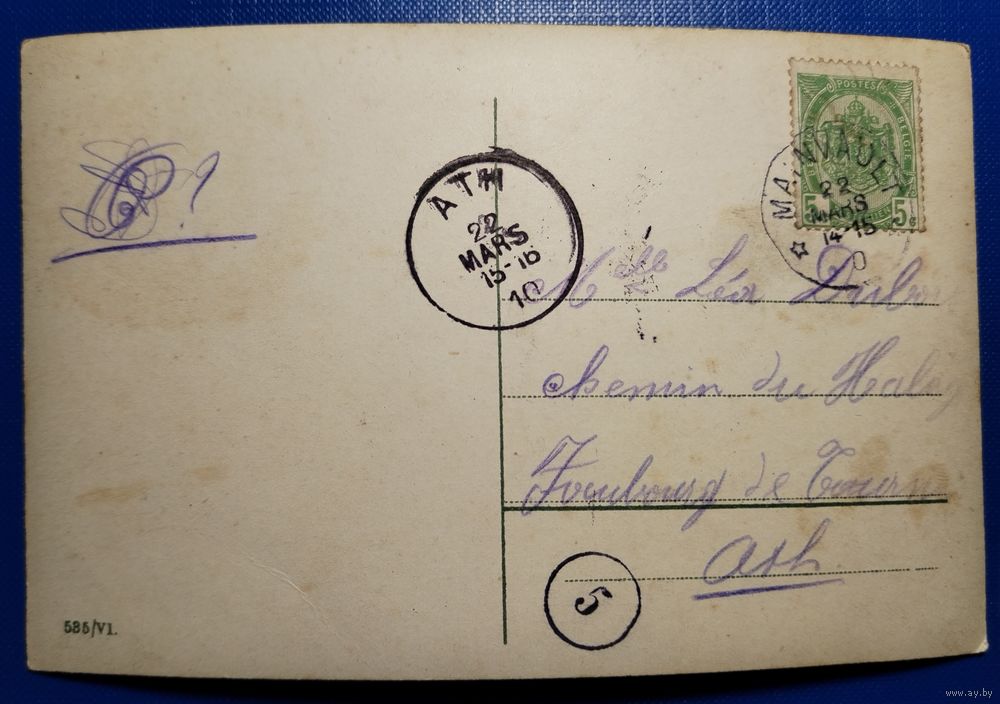 POSTES
BELGIE
5 5c
MAINVAULT
22
MARS
14-15
10
ATH
22
MARS
15-16
10
Mlle Léa Dubo
chemin du
Faubourg de Tourn
Ath.
5
535/VI.
www.ay.by